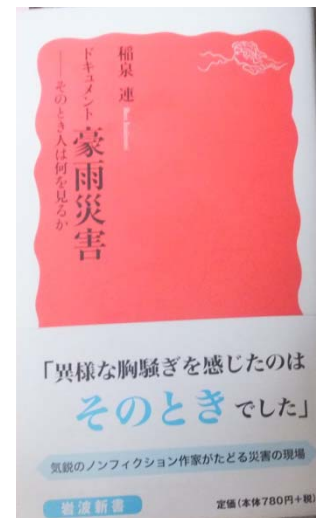 稲泉 連
ドキュメント 豪雨災害
──そのとき人は何を見るか
「異様な胸騒ぎを感じたのは
そのときでした」
気鋭のノンフィクション作家がたどる災害の現場
岩波新書
定価(本体780円+税)